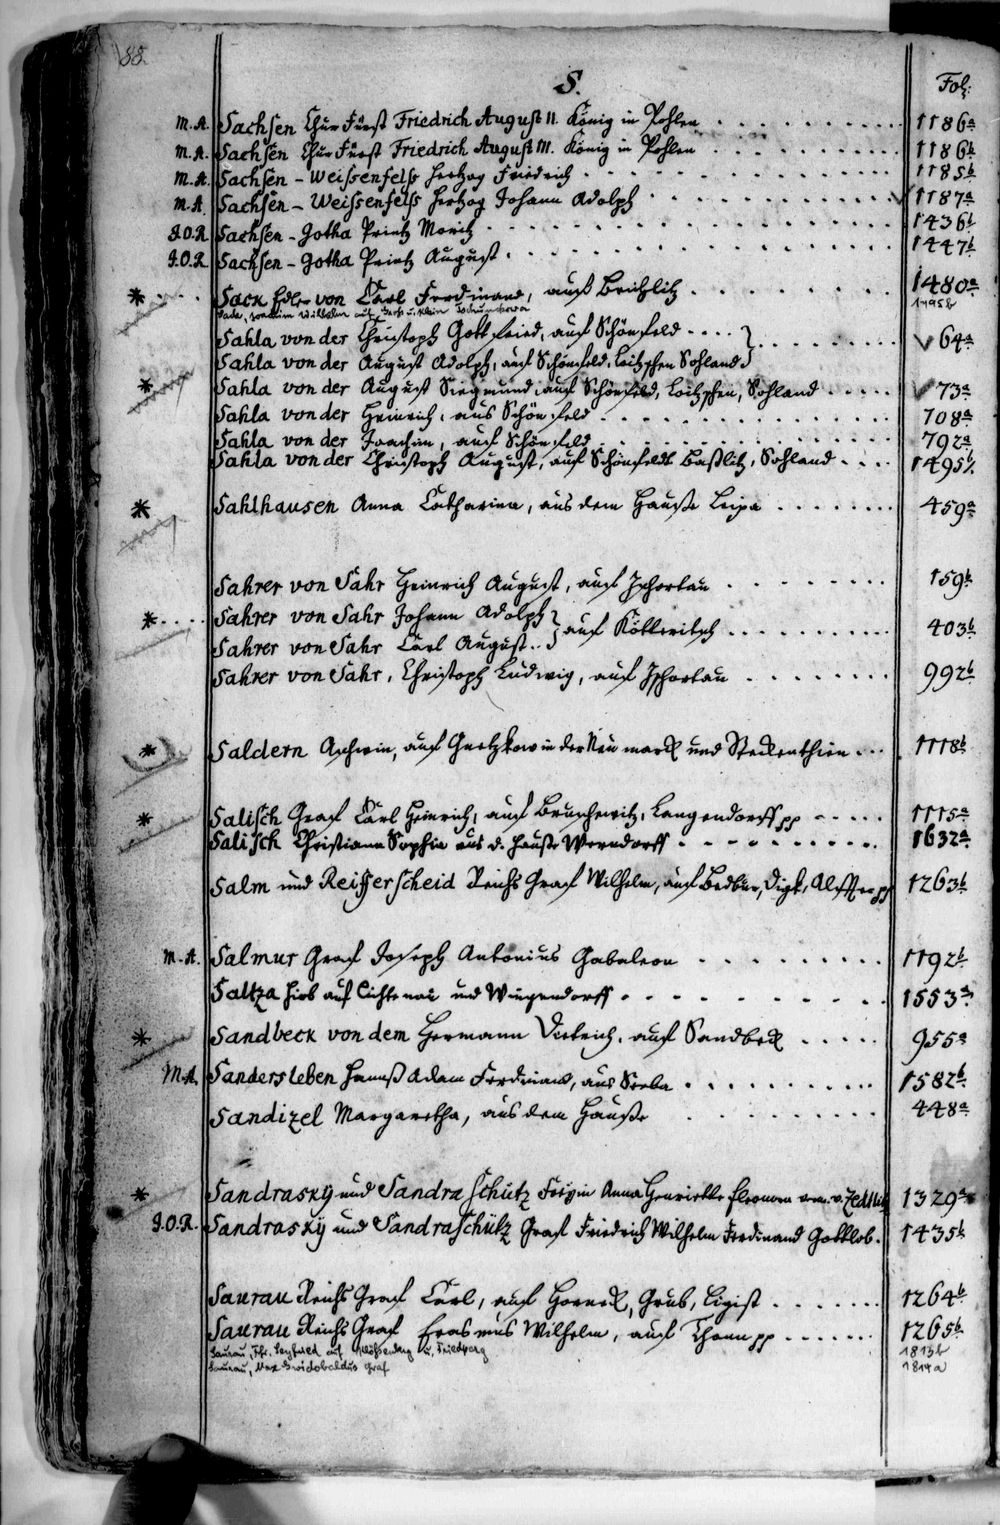 88.
S.
Fol:
M.A. Sachsen ChurFürst Friedrich August II. König in Pohlen . . . . . . . 1186a
M.A. Sachsen ChurFürst Friedrich August III. König in Pohlen . . . . . . . 1186b
M.A. Sachsen - Weissenfelss Hertzog Friedrich . . . . . . . 1185b
M.A. Sachsen - Weissenfelss Hertzog Johann Adolph . . . . . . . 1187a
J.O.R. Sachsen - Gotha Printz Moritz . . . . . . . 1436b
J.O.R. Sachsen - Gotha Printz August . . . . . . . 1447b
* . . . . Sack Edler von Carl Ferdinand, auf . . . . . . . 1480a
Sack, Joachim Wilhelm auf Groß u. Klein 1795b
Sahla von der Christoph Gottfried, auf Schönfeld . . . .
} . . . . . . . 64a
Sahla von der August Adolph, auf Schönfeld, Sohland
* Sahla von der August Siegmund, auf Schönfeld, Sohland . . . . . 73a
Sahla von der Heinrich, aus Schönfeld . . . . . . . 708a
Sahla von der Joachim, auf Schönfeld . . . . . . . 792a
Sahla von der Christoph August, auf Schönfeldt Sohland . . . . 1495b
* Sahlhausen Anna Catharina, aus dem Hause Leipa . . . . . . . 459a
Sahrer von Sahr Heinrich August, auf Zschorlau . . . . . . . 159b
* . . . . Sahrer von Sahr Johann Adolph
} auf Kötteritzsch . . . . . . . 403b
Sahrer von Sahr Carl August . .
Sahrer von Sahr, Christoph Ludwig, auf Zschorlau . . . . . . . 992b
* Saldern auf in der Neumarck und . . . 1118b
* Salisch Graf Carl Heinrich, auf Langendorff pp . . . . . 1115a
Salisch Christiana Sophia aus d. Hause . . . . . . . 1632a
Salm und Reifferscheid Reichs Graf Wilhelm, auf Bedbur, Dyck, Alffter pp 1263b
M.A. Salmur Graf Joseph Antonius Gabaleon . . . . . . . 1192b
Saltza Hiob auf Lichtenau und . . . . . . . 1553a
* Sandbeck von dem Hermann Dietrich, auf Sandbeck . . . . . 955a
M.A. Sandersleben Hannß Adam Ferdinand, aus . . . . . . . 1582b
Sandizel Margaretha, aus dem Hause . . . . . . . 448a
* Sandrasky und Sandraschütz Freyin Anna Henriette Eleonora verm. v. Zedlitz 1329a
J.O.R. Sandrasky und Sandraschütz Graf Friedrich Wilhelm Ferdinand Gottlob. 1435b
Saurau Reichs Graf Carl, auf Horneck, Grub, Ligist . . . . . . . 1264b
Saurau Reichs Graf Erasmus Wilhelm, auf pp . . . . . . . 1265b
Saurau, Fhr. Seyfried auf u. Friedberg 1813b
Saurau, Max Graf 1814a